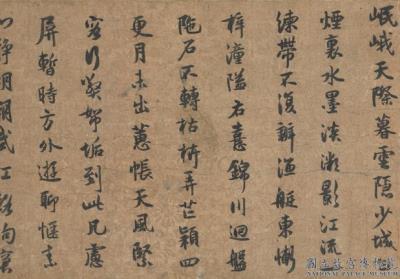 岷峨天際暮雲隱少城
煙裏水墨淡瀨影江流
練帶不復辭漁艇東懶
梓潼隘右喜錦川迴盤
陁石不轉枯椅弄芒穎四
更月未出蕙帳天風緊
寒行 婦垢到此凡慮
屏暫時方外遊聊愜素
心靜明朝 江 句
國立故宮博物院
NATIONAL PALACE MUSEUM